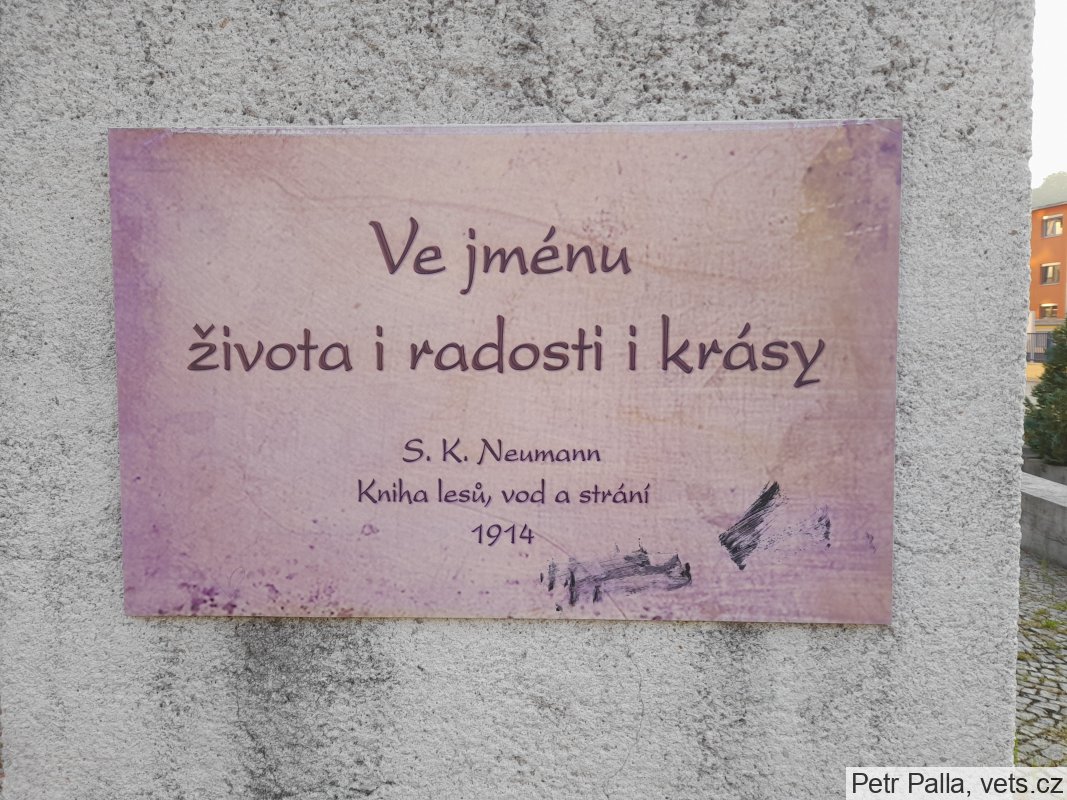 Ve jménu
života i radosti i krásy
S. K. Neumann
Kniha lesů, vod a strání
1914
Petr Palla, vets.cz